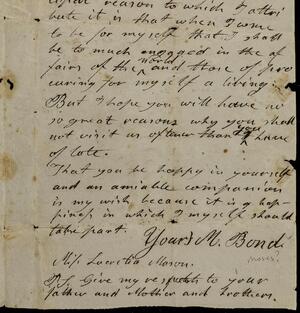 reason to which I attri
bute it is that when I come
to be for myself that I shall
be to much engaged in the af
fairs of the world and those of pro
curing for myself a living.
But I hope you will have no
so great reasons why you shall
not visit us oftener than you have
of late.
That you be happy in yourself
and an amiable companion
is my wish because it is a hap-
piness in which I myself should
take part.
Yours M. Bond
Miss Lucretia Mason.
P.S. Give my respects to your
father and Mother and brothers.